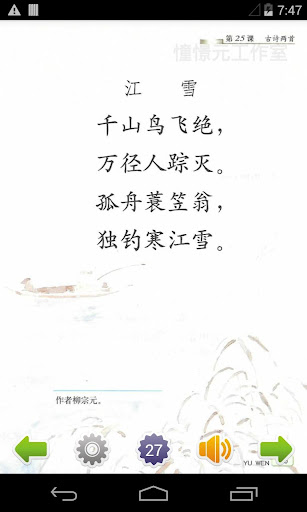 7:47
第25课 古诗两首
憧憬元工作室
江 雪
千山鸟飞绝，
万径人踪灭。
孤舟蓑笠翁，
独钓寒江雪。
作者柳宗元。
27
YU WEN